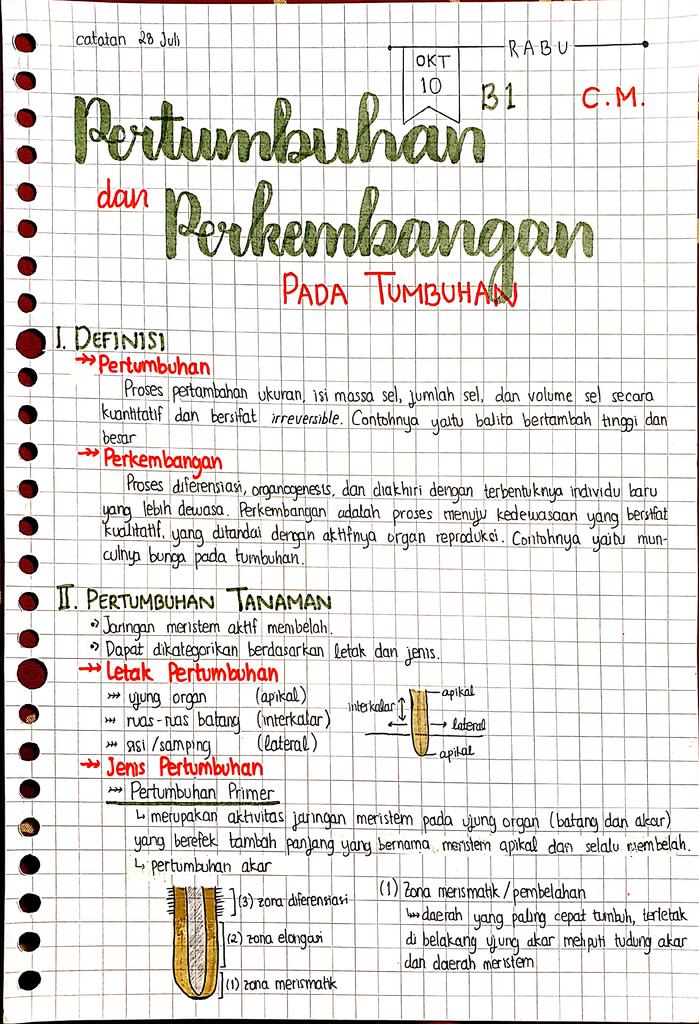 catatan 28 Juli
RABU
OKT
10
B1
C.M.
Pertumbuhan
dan Perkembangan
PADA TUMBUHAN
I. DEFINISI
→ Pertumbuhan
Proses pertambahan ukuran, isi massa sel, jumlah sel, dan volume sel secara
kuantitatif dan bersifat irreversible. Contohnya yaitu balita bertambah tinggi dan
besar
→ Perkembangan
Proses diferensiasi, organogenesis, dan diakhiri dengan terbentuknya individu baru
yang lebih dewasa. Perkembangan adalah proses menuju kedewasaan yang bersifat
kualitatif, yang ditandai dengan aktifnya organ reproduksi. Contohnya yaitu mun-
culnya bunga pada tumbuhan.
II. PERTUMBUHAN TANAMAN
Jaringan meristem aktif membelah.
Dapat dikategorikan berdasarkan letak dan jenis.
→ Letak Pertumbuhan
→ ujung organ (apikal)
→ ruas-ruas batang (interkalar)
→ sisi/samping (lateral)
apikal
interkalar
lateral
apikal
→ Jenis Pertumbuhan
→ Pertumbuhan Primer
↳ merupakan aktivitas jaringan meristem pada ujung organ (batang dan akar)
yang berefek tambah panjang yang bernama meristem apikal dan selalu membelah.
↳ pertumbuhan akar
(3) zona diferensiasi
(2) zona elongasi
(1) zona merismatik
(1) Zona merismatik/pembelahan
↳ daerah yang paling cepat tumbuh, terletak
di belakang ujung akar meliputi tudung akar
dan daerah meristem